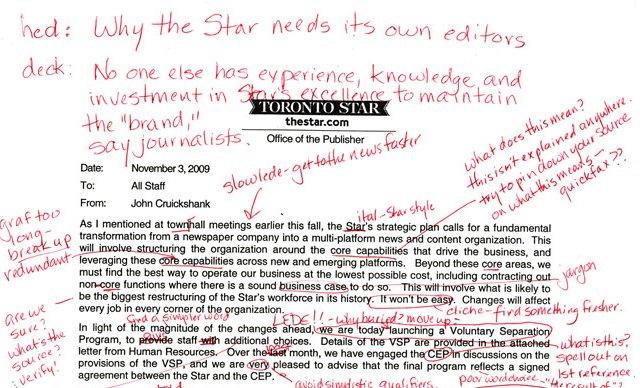 hed: Why the Star needs its own editors
deck: No one else has experience, knowledge and
investment in Star's excellence to maintain
the "brand,"
say journalists.
TORONTO STAR
thestar.com
Office of the Publisher
what does this mean?
this isn't explained anywhere.
try to pin down your source
on what this means—
quickfax??
slow lede - get to the news faster
Date: November 3, 2009
To: All Staff
From: John Cruickshank
ital - Star style
graf too
long -
break up
redundant
As I mentioned at townhall meetings earlier this fall, the Star's strategic plan calls for a fundamental
transformation from a newspaper company into a multi-platform news and content organization. This
will involve structuring the organization around the core capabilities that drive the business, and
leveraging these core capabilities across new and emerging platforms. Beyond these core areas, we
must find the best way to operate our business at the lowest possible cost, including contracting out
non-core functions where there is a sound business case to do so. This will involve what is likely to
be the biggest restructuring of the Star's workforce in its history. It won't be easy. Changes will affect
every job in every corner of the organization.
jargon
cliche - find something fresher.
are we
sure?
what's the
source?
verify.
find a simpler word
LEDE!! - why buried? move up
In light of the magnitude of the changes ahead, we are today launching a Voluntary Separation
Program, to provide staff with additional choices. Details of the VSP are provided in the attached
letter from Human Resources. Over the last month, we have engaged the CEP in discussions on the
provisions of the VSP, and we are very pleased to advise that the final program reflects a signed
agreement between the Star and the CEP.
give
what is this?
spell out on
1st reference
avoid simplistic qualifiers